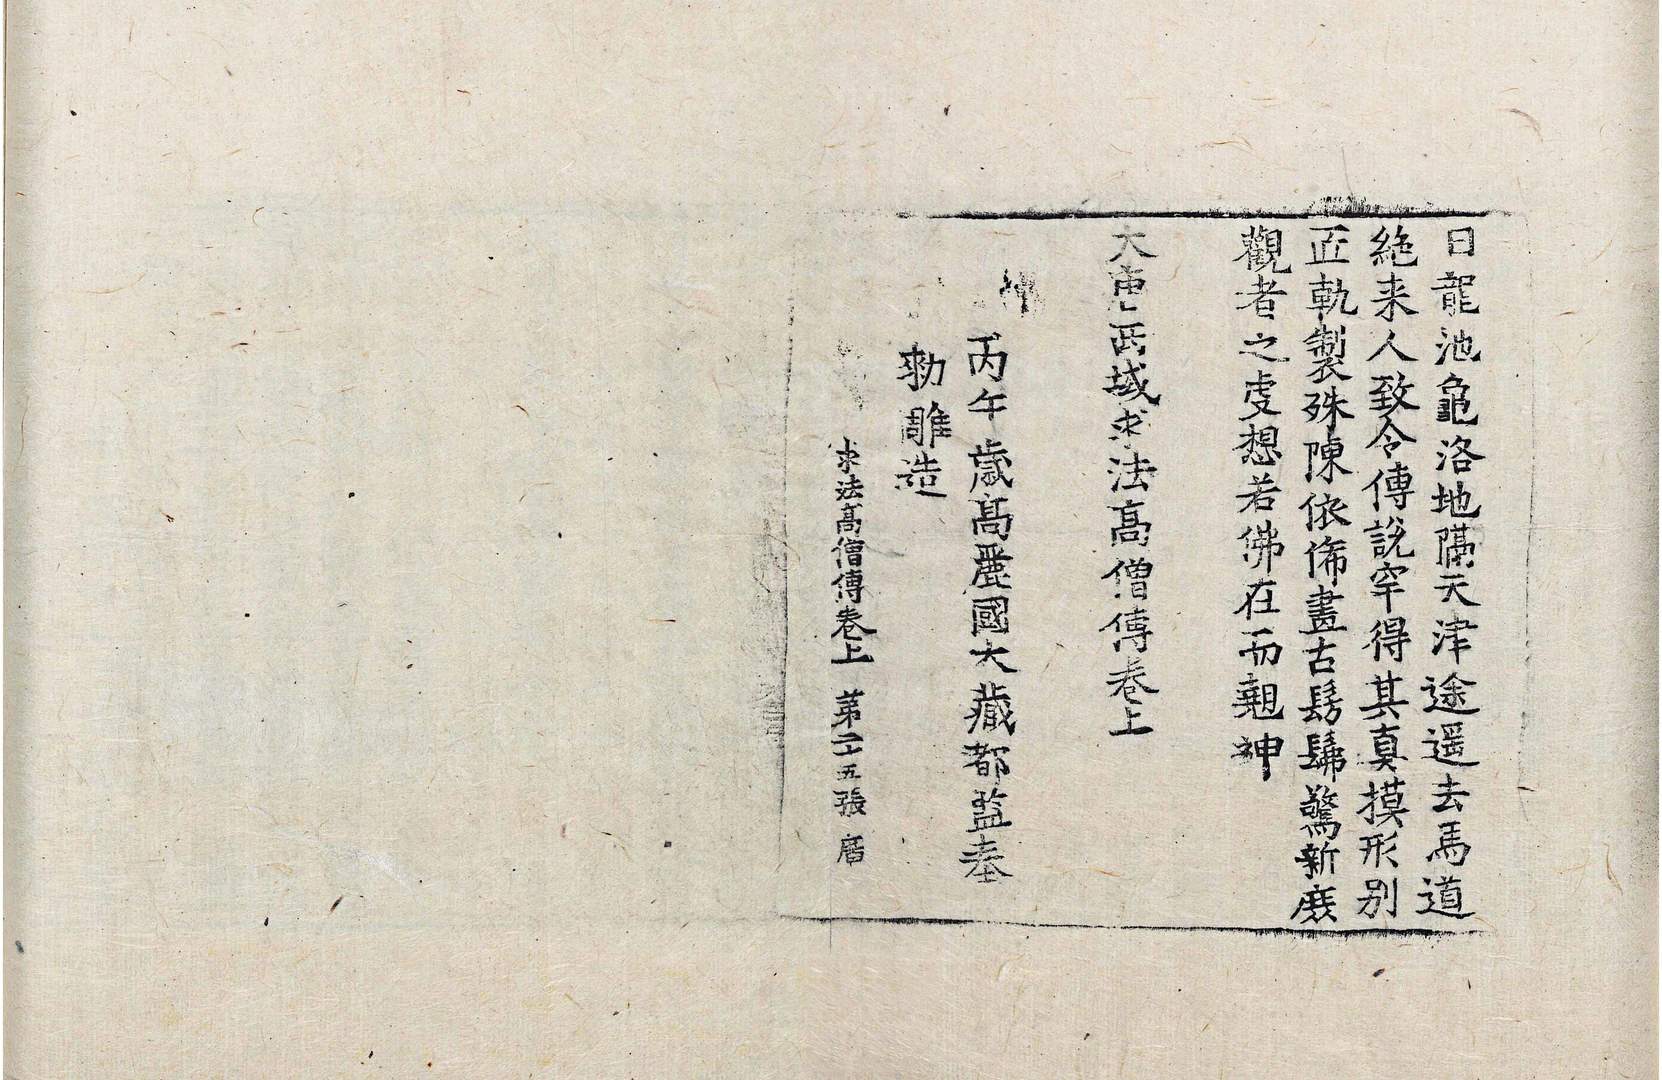 日龍池龜洛地隔天津途遥去馬道
絶来人致令傳說罕得其真摸形别
匠軌製殊陳依俙畫古髣髴驚新庶
觀者之虔想若佛在而翹神
大唐西域求法高僧傳卷上
丙午歳高麗國大藏都監奉
勑雕造
求法高僧傳卷上 第二十五張